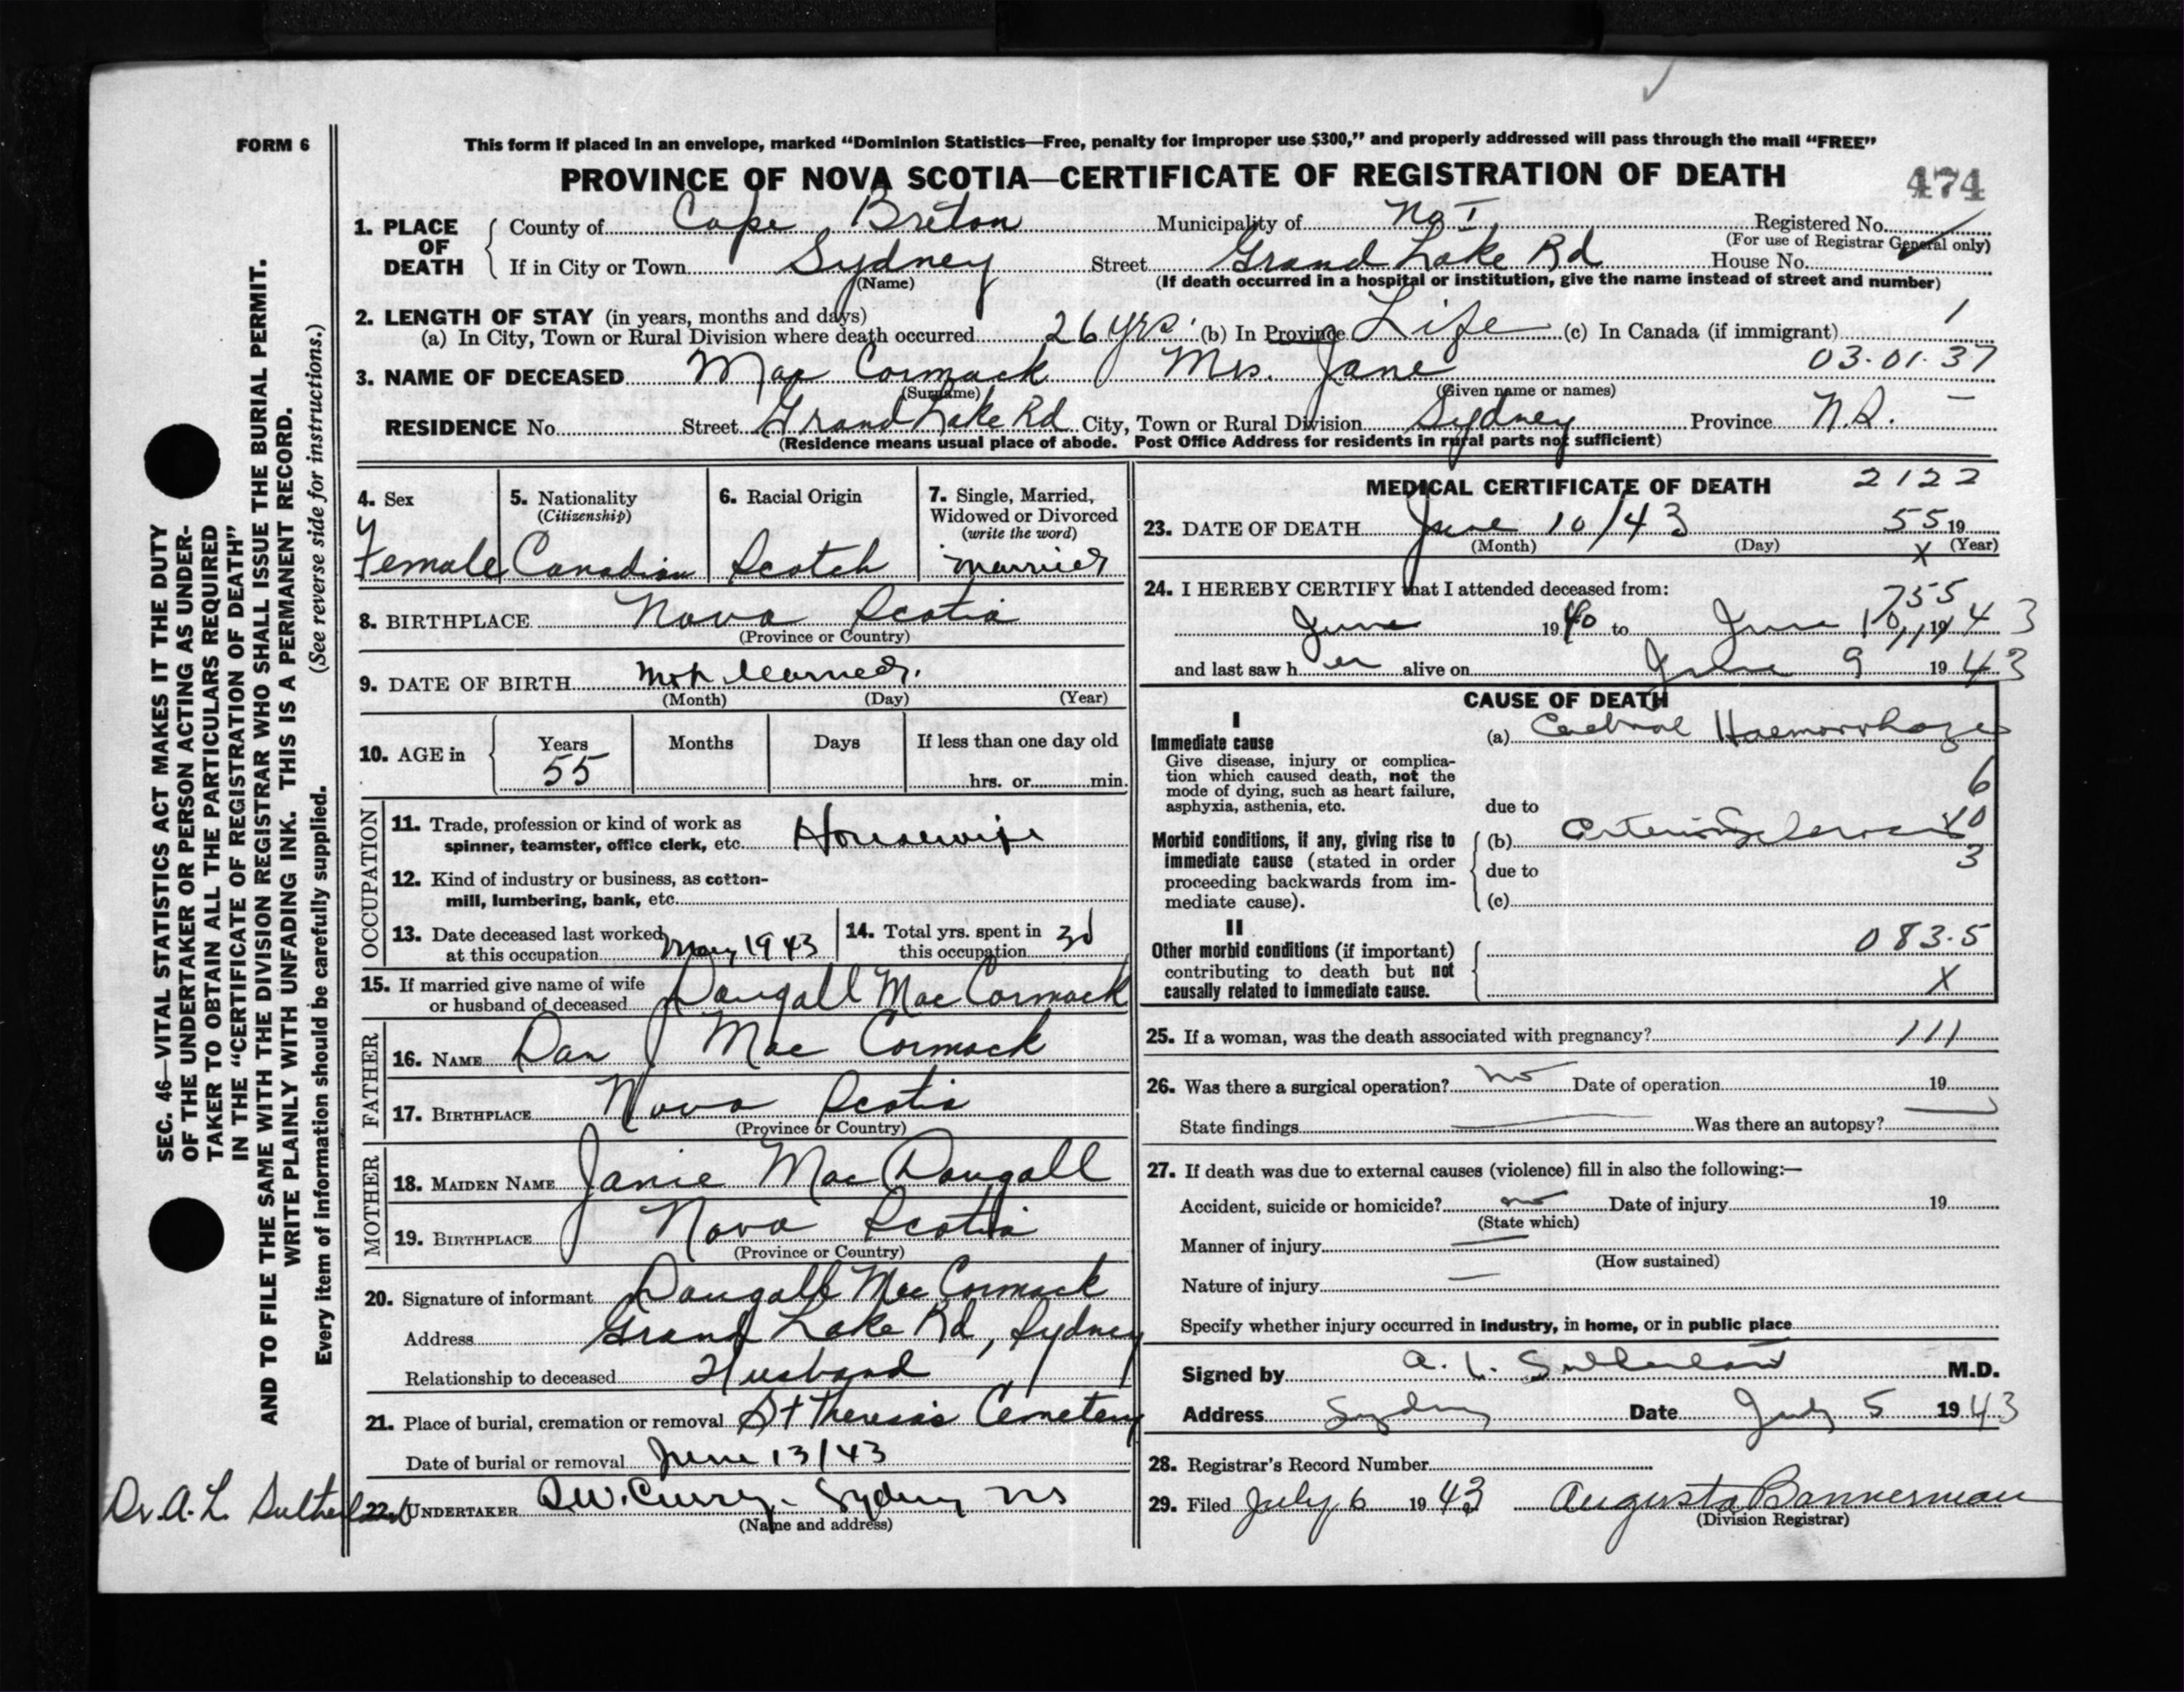 FORM 6
This form if placed in an envelope, marked “Dominion Statistics—Free, penalty for improper use $300,” and properly addressed will pass through the mail “FREE”
PROVINCE OF NOVA SCOTIA—CERTIFICATE OF REGISTRATION OF DEATH
474
1. PLACE OF DEATH
County of Cape Breton Municipality of No I Registered No.
(For use of Registrar General only)
If in City or Town Sydney Street Grand Lake Rd House No.
(Name) (If death occurred in a hospital or institution, give the name instead of street and number)
2. LENGTH OF STAY (in years, months and days)
(a) In City, Town or Rural Division where death occurred 26 yrs. (b) In Province Life (c) In Canada (if immigrant) 1
3. NAME OF DECEASED Mac Cormack Mrs. Jane 03-01-37
(Surname) (Given name or names)
RESIDENCE No. Street Grand Lake Rd City, Town or Rural Division Sydney Province N.S. —
(Residence means usual place of abode. Post Office Address for residents in rural parts not sufficient)
4. Sex
Female
5. Nationality
(Citizenship)
Canadian
6. Racial Origin
Scotch
7. Single, Married,
Widowed or Divorced
(write the word)
married
8. BIRTHPLACE Nova Scotia
(Province or Country)
9. DATE OF BIRTH Not learned.
(Month) (Day) (Year)
10. AGE in
Years Months Days If less than one day old
55 hrs. or min.
OCCUPATION
11. Trade, profession or kind of work as
spinner, teamster, office clerk, etc. Housewife
12. Kind of industry or business, as cotton-
mill, lumbering, bank, etc.
13. Date deceased last worked
at this occupation May 1943
14. Total yrs. spent in
this occupation
15. If married give name of wife
or husband of deceased Dougall MacCormack
FATHER
16. NAME Dan J MacCormack
17. BIRTHPLACE Nova Scotia
(Province or Country)
MOTHER
18. MAIDEN NAME Janie MacDougall
19. BIRTHPLACE Nova Scotia
(Province or Country)
20. Signature of informant Dougall MacCormack
Address Grand Lake Rd, Sydney
Relationship to deceased Husband
21. Place of burial, cremation or removal St Theresa's Cemetery
Date of burial or removal June 13/43
22. UNDERTAKER Curry - Sydney NS
(Name and address)
Dr. A. L. Sutherland
MEDICAL CERTIFICATE OF DEATH 2122
23. DATE OF DEATH June 10/43 55 19
(Month) (Day) x (Year)
24. I HEREBY CERTIFY that I attended deceased from:
755
June 1940 to June 10, 1943
and last saw her alive on June 9 1943
CAUSE OF DEATH
I
Immediate cause
Give disease, injury or complica-
tion which caused death, not the
mode of dying, such as heart failure,
asphyxia, asthenia, etc.
(a) Cerebral Haemorrhage
6
due to
Morbid conditions, if any, giving rise to
immediate cause (stated in order
proceeding backwards from im-
mediate cause).
(b) Arteriosclerosis
3
due to
(c)
II
Other morbid conditions (if important)
contributing to death but not
causally related to immediate cause.
083.5
X
25. If a woman, was the death associated with pregnancy? 111
26. Was there a surgical operation? no Date of operation 19
State findings — Was there an autopsy? —
27. If death was due to external causes (violence) fill in also the following:—
Accident, suicide or homicide? no Date of injury 19
(State which)
Manner of injury —
(How sustained)
Nature of injury —
Specify whether injury occurred in industry, in home, or in public place
Signed by A. L. Sutherland M.D.
Address Sydney Date July 5 1943
28. Registrar's Record Number
29. Filed July 6 1943 Augusta Bannerman
(Division Registrar)
SEC. 46—VITAL STATISTICS ACT MAKES IT THE DUTY
OF THE UNDERTAKER OR PERSON ACTING AS UNDER-
TAKER TO OBTAIN ALL THE PARTICULARS REQUIRED
IN THE “CERTIFICATE OF REGISTRATION OF DEATH”
AND TO FILE THE SAME WITH THE DIVISION REGISTRAR WHO SHALL ISSUE THE BURIAL PERMIT.
WRITE PLAINLY WITH UNFADING INK. THIS IS A PERMANENT RECORD.
Every item of information should be carefully supplied. (See reverse side for instructions.)